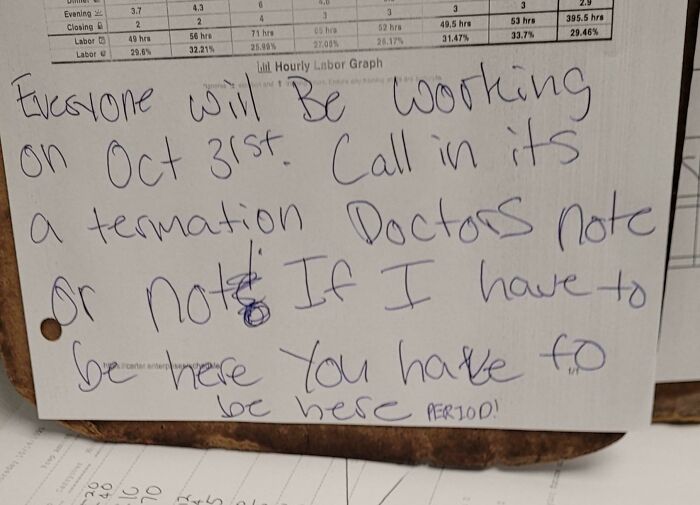 Evening 3.7 4.3 6 3 3 2.9
Closing 2 2 4 3 3 49.5 hrs 53 hrs 395.5 hrs
Labor 49 hrs 56 hrs 71 hrs 65 hrs 52 hrs 31.47% 33.7% 29.46%
Labor 29.6% 32.21% 25.99% 27.08% 26.17%
Hourly Labor Graph
Everyone will Be working
on Oct 31st. Call in its
a termation Doctors note
or not! If I have to
be here You have to
be here PERIOD!